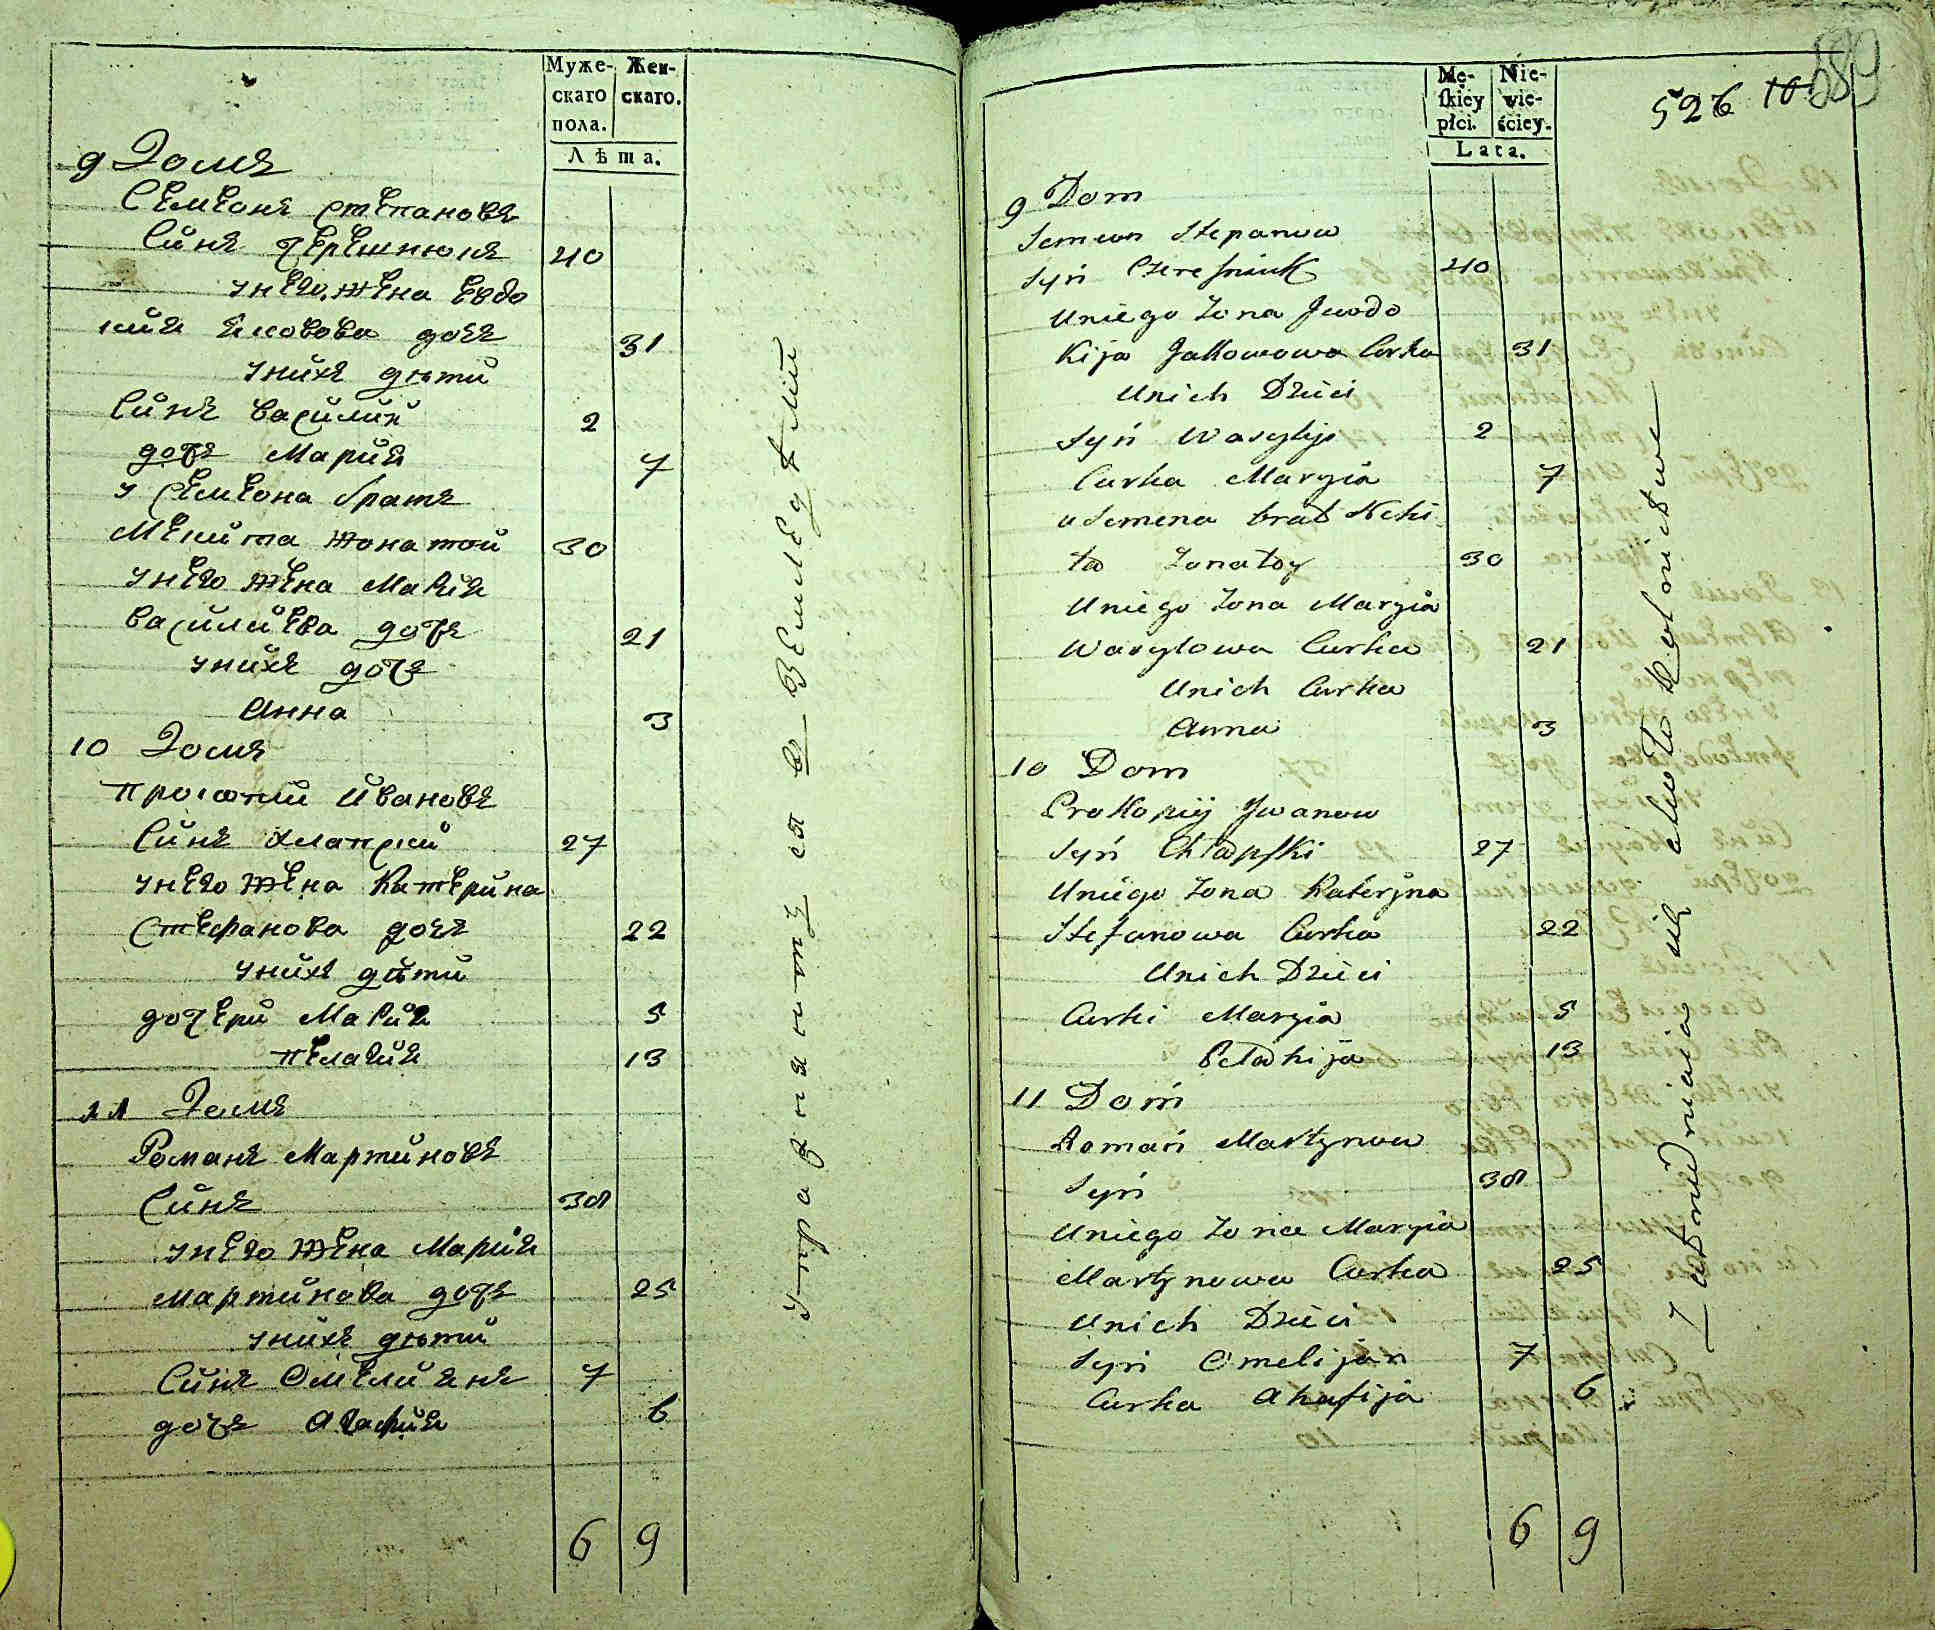 Муже- Жен-
скаго скаго.
пола.
Лѣта.
9 Домъ
Семіонъ Степановъ
Синъ Черешнюкъ 40
унего жена Евдо
кия Яковова дочъ 31
унихъ дѣти
Синъ Василий 2
дочъ Мария 7
у Семіона братъ
Микита жонатой 30
унего жена Мария
Василиева дочъ 21
унихъ дочъ
Анна 3
10 Домъ
Прокопий Ивановъ
Синъ Хлапский 27
унего жена Катерина
Стефанова дочъ 22
унихъ дѣти
дочери Мария 5
Пелагия 13
11 Домъ
Романъ Мартиновъ
Синъ 38
унего жена Мария
Мартинова дочъ 25
унихъ дѣти
Синъ Омелиянъ 7
дочъ Агафия 6
6 9
Mę- Nie-
ſkiey wie-
płci. ściey.
Lata.
526 10
589
9 Dom
Semeon Stepanow
Syn Czereſniuk 40
Uniego Zona Jewdo
Kija Jakowowa Curka 31
Unich Dzieci
Syn Wasylij 2
Curka Maryia 7
u Semena brat Neki
ta Zonatoy 30
Uniego Zona Maryia
Wasylowa Curka 21
Unich Curka
Anna 3
10 Dom
Prokopij Jwanow
Syn Chłapſki 27
Uniego Zona Kateryna
Stefanowa Curka 22
Unich Dzieci
Curki Maryia 5
Pelahija 13
11 Dom
Roman Martynow
Syn 38
Uniego Zona Maryia
Martynowa Curka 25
Unich Dzieci
Syn Omelijan 7
Curka Ahafija 6
6 9